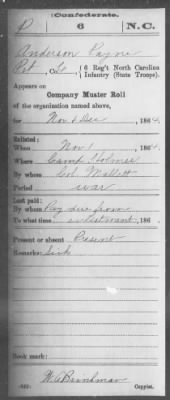 Confederate.
P 6 N.C.
Anderson Payne
Pvt, Co. 6 Reg't North Carolina
Infantry (State Troops).
Appears on
Company Muster Roll
of the organization named above,
for Nov & Dec, 1864.
Enlisted:
When Nov 1, 1864.
Where Camp Holmes
By whom Col Mallett
Period war
Last paid:
By whom Pay due from
To what time enlistment, 186 .
Present or absent Present
Remarks: Sick
Book mark:
W. A. Brinkman
Copyist.